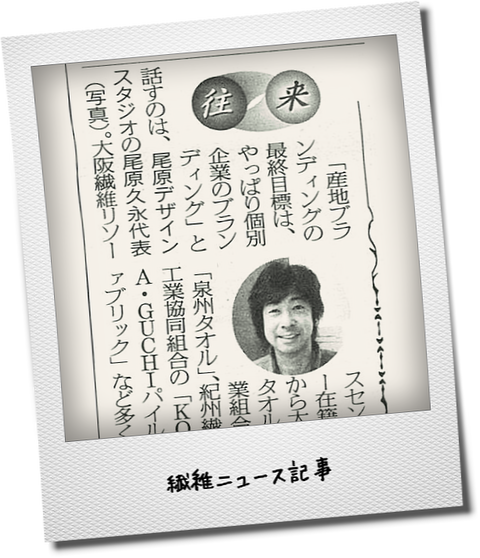 往来
「産地ブラ
ンディングの
最終目標は、
やっぱり個別
企業のブラン
ディング」と
話すのは、尾原デザイン
スタジオの尾原久永代表
（写真）。大阪繊維リソー
スセン
ー在籍
から大
タオル
業組合
「泉州タオル」、紀州繊
工業協同組合の「KO
A・GUCHIパイル
ァブリック」など多く
繊維ニュース記事